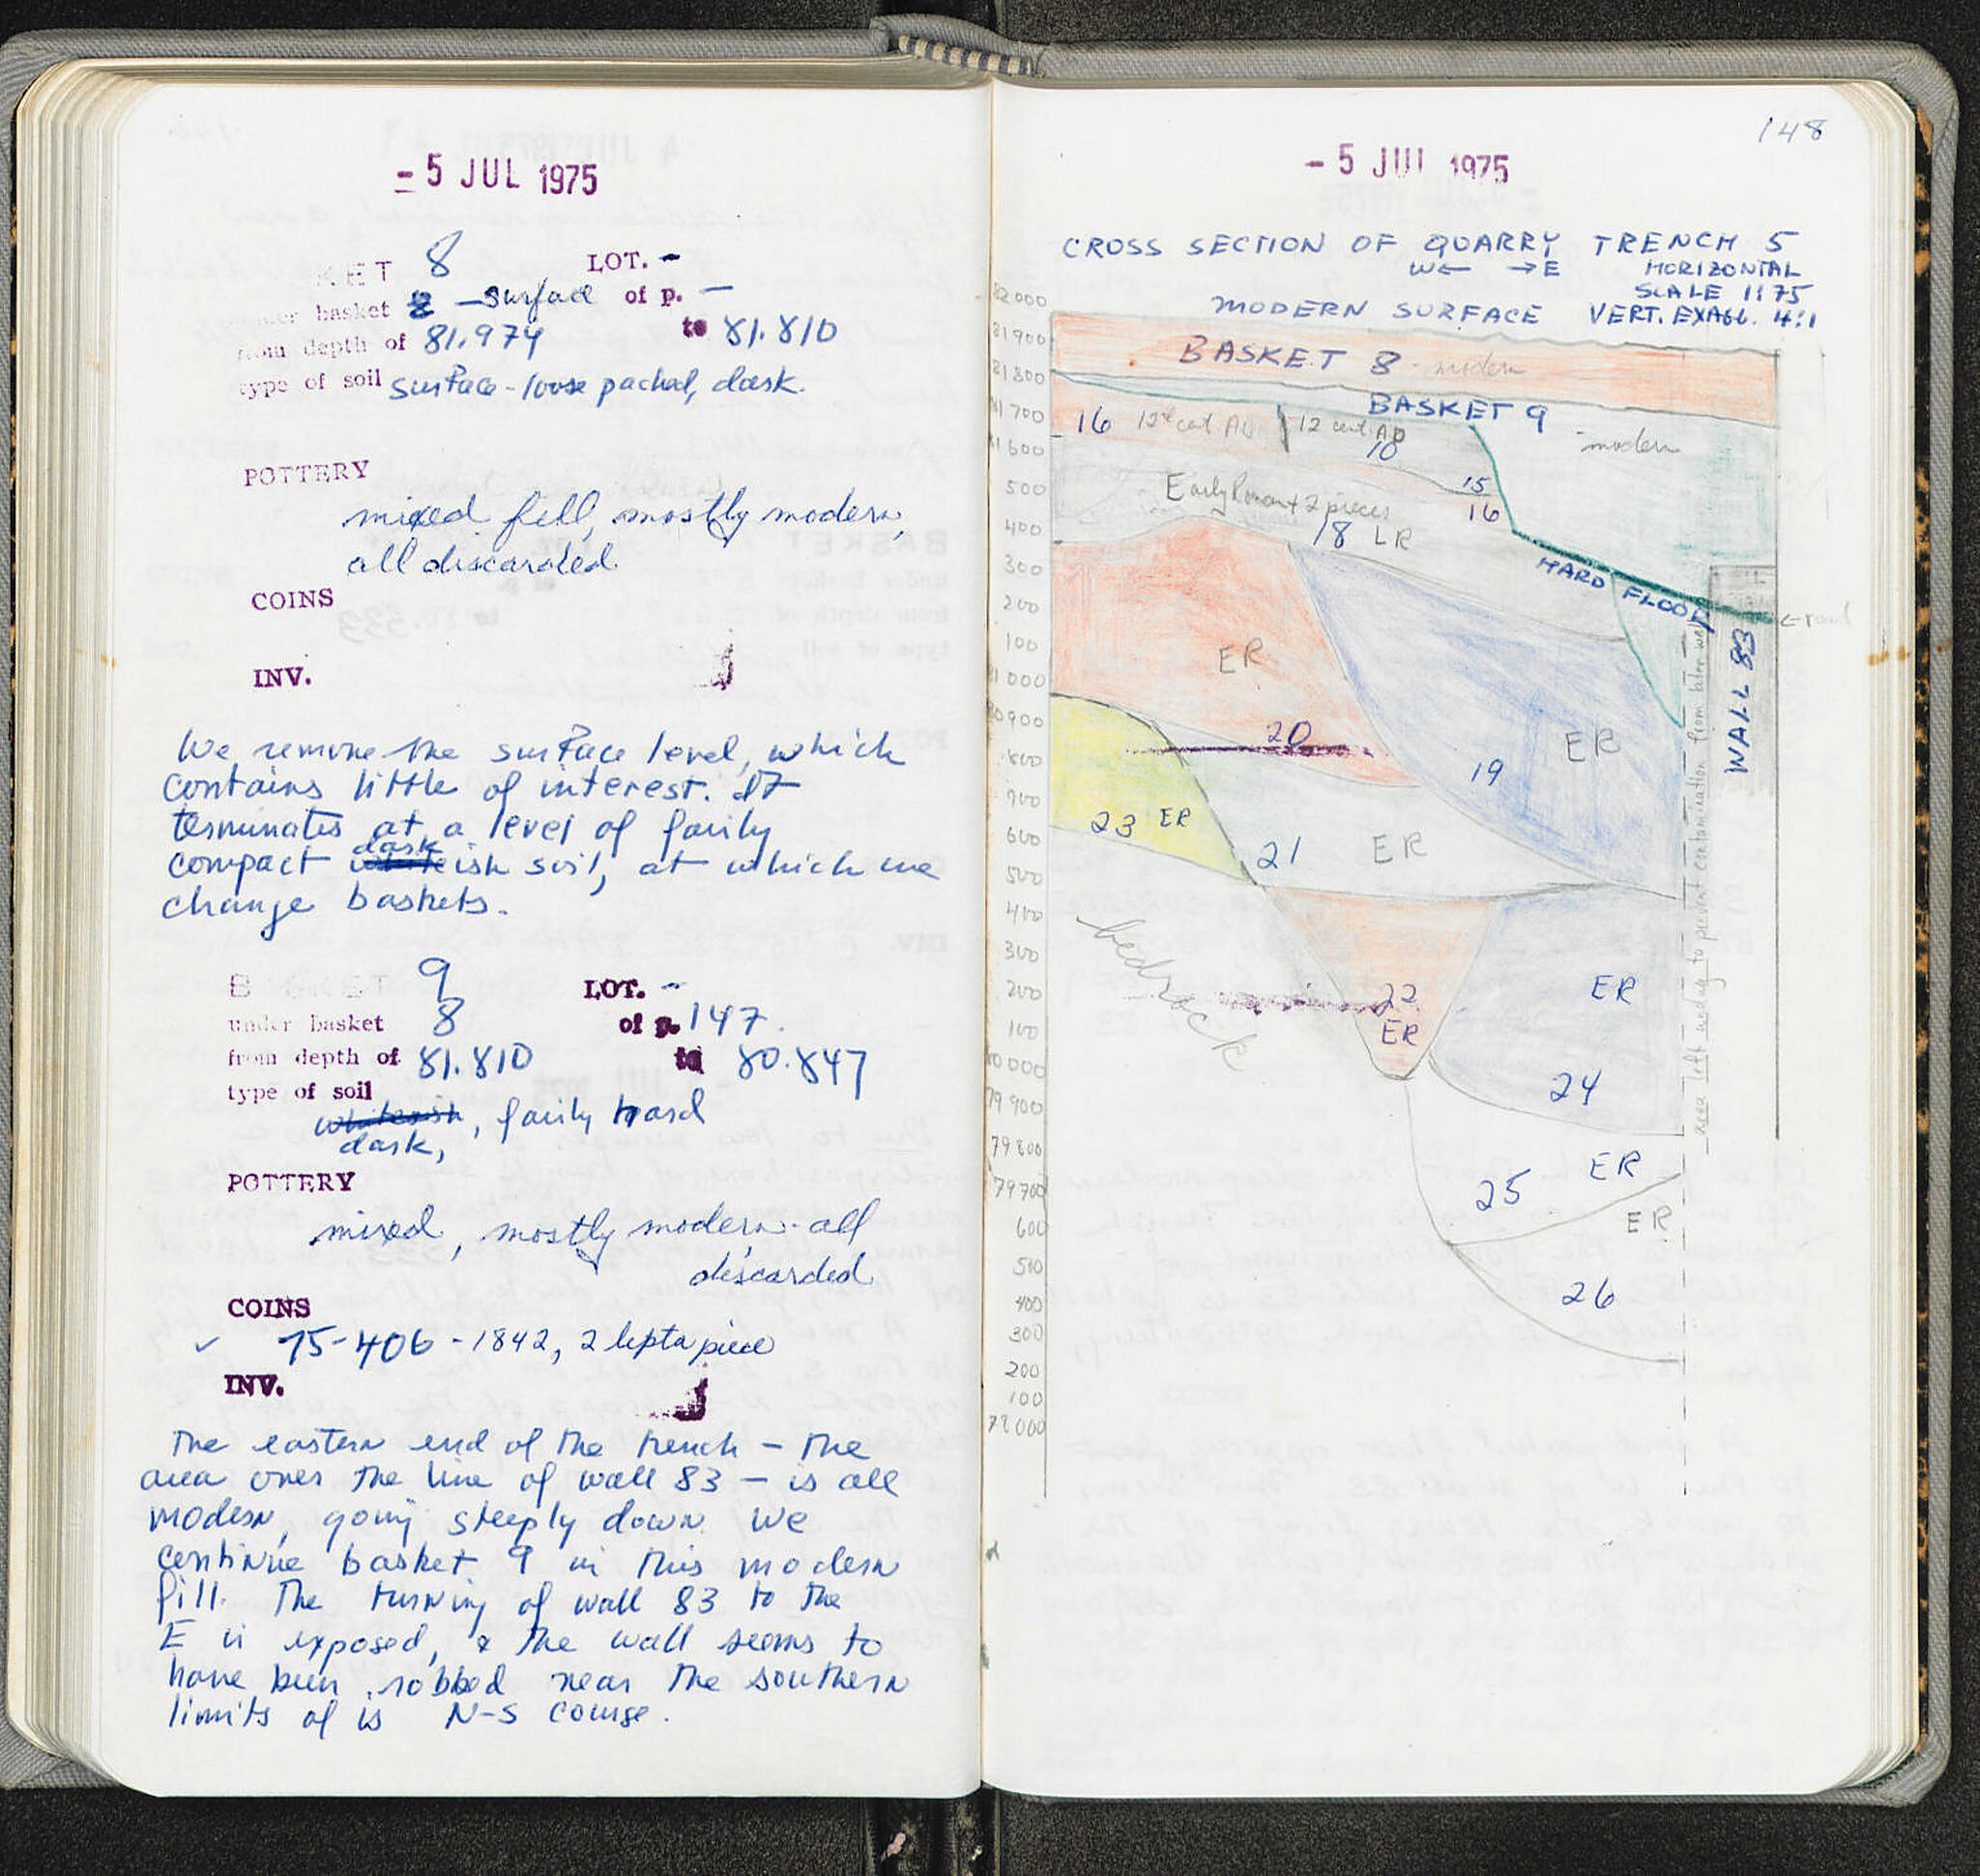 - 5 JUL 1975
KET 8 LOT. -
under basket 8 - surface of p. -
from depth of 81.974 to 81.810
type of soil surface - loose packed, dark.
POTTERY
mixed fill, mostly modern,
all discarded
COINS
INV.
We remove the surface level, which
contains little of interest. It
terminates at a level of fairly
compact whiteish dark soil, at which we
change baskets.
BASKET 9 LOT. -
under basket 8 of p. 147.
from depth of 81.810 to 80.847
type of soil
whiteish, fairly hard
dark,
POTTERY
mixed, mostly modern - all
discarded
COINS
✓ 75-406 - 1842, 2 lepta piece
INV.
The eastern end of the trench - the
area over the line of wall 83 - is all
modern, going steeply down. We
continue basket 9 in this modern
fill. The turning of wall 83 to the
E is exposed, & the wall seems to
have been robbed near the southern
limits of is N-S course.
148
- 5 JUL 1975
CROSS SECTION OF QUARRY TRENCH 5
W← →E HORIZONTAL
SCALE 1:75
MODERN SURFACE VERT. EXAGG. 4:1
82000
81900
BASKET 8 - modern
81800
BASKET 9
81700
16 12th cent AD 12 cent AD
10 modern
81600
15
500
Early Roman + 2 pieces 16
400
18 LR
HARD FLOOR
300
200
← road
100
ER
81000
80900
20 ER
WALL 83
800
19
700
23 ER
600
21 ER
500
400
bedrock
300
22 ER
200
ER
100
80000
24
79900
79800
ER
79700
25
ER
600
500
26
400
300
200
100
79000
area left undug to prevent contamination from later wall